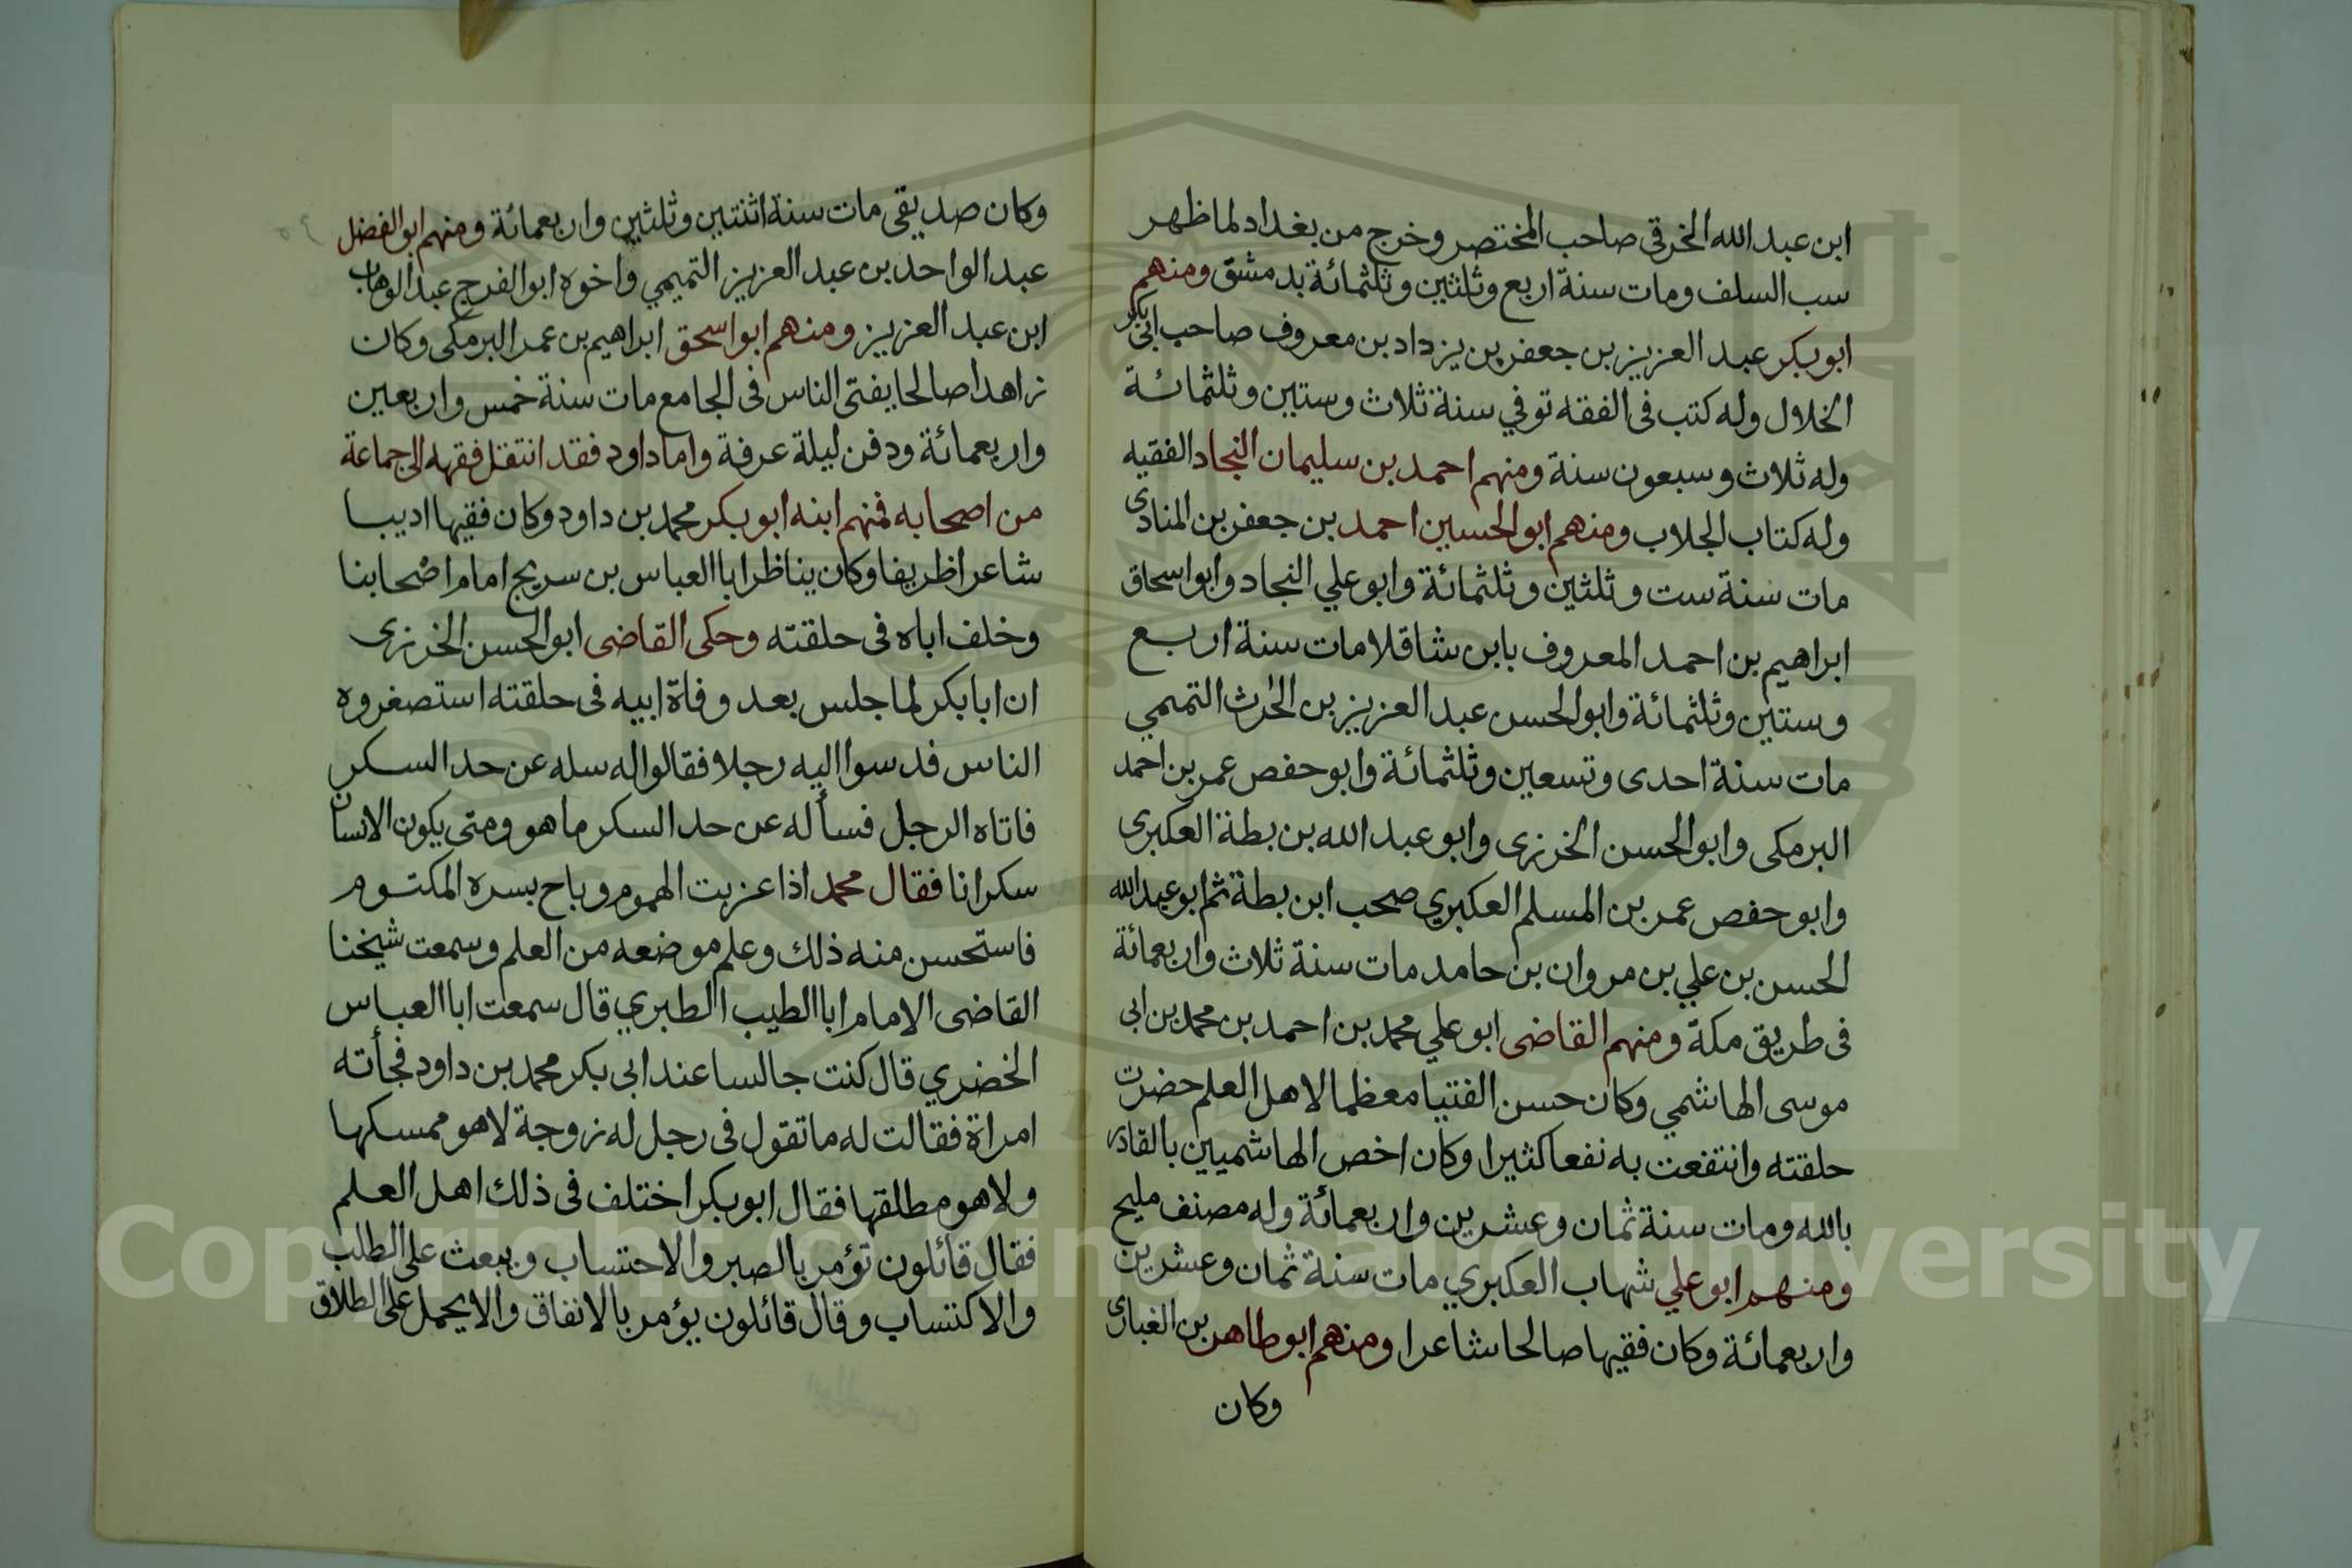 ابن عبد الله الخرقي صاحب المختصر وخرج من بغداد لما ظهر
سب السلف ومات سنة اربع وثلثين وثلثمائة بدمشق ومنهم
ابو بكر عبد العزيز بن جعفر بن يزداد بن معروف صاحب ابي بكر
الخلال وله كتب فى الفقه توفي سنة ثلاث وستين وثلثمائة
وله ثلاث وسبعون سنة ومنهم احمد بن سليمان النجاد الفقيه
وله كتاب الجلاب ومنهم ابو الحسين احمد بن جعفر بن المنادى
مات سنة ست وثلثين وثلثمائة وابو علي النجاد وابو اسحاق
ابراهيم بن احمد المعروف بابن شاقلا مات سنة اربع
وستين وثلثمائة وابو الحسن عبد العزيز بن الحرث التميمي
مات سنة احدى وتسعين وثلثمائة وابو حفص عمر بن احمد
البرمكى وابو الحسن الخرزى وابو عبد الله بن بطة العكبرى
وابو حفص عمر بن المسلم العكبري صحب ابن بطة ثم ابو عبد الله
الحسن بن علي بن مروان بن حامد مات سنة ثلاث واربعمائة
فى طريق مكة ومنهم القاضى ابو علي محمد بن احمد بن محمد بن ابى
موسى الهاشمي وكان حسن الفتيا معظما لاهل العلم حضرت
حلقته وانتفعت به نفعا كثيرا وكان اخص الهاشميين بالقادر
بالله ومات سنة ثمان وعشرين واربعمائة وله مصنف مليح
ومنهم ابو علي شهاب العكبري مات سنة ثمان وعشرين
واربعمائة وكان فقيها صالحا شاعرا ومنهم ابو طاهر بن الغبارى
وكان
وكان صديقى مات سنة اثنتين وثلثين واربعمائة ومنهم ابو الفضل
عبد الواحد بن عبد العزيز التميمي واخوه ابو الفرج عبد الوهاب
ابن عبد العزيز ومنهم ابو اسحق ابراهيم بن عمر البرمكى وكان
زاهدا صالحا يفتى الناس فى الجامع مات سنة خمس واربعين
واربعمائة ودفن ليلة عرفة واما داود فقد انتقل فقهه الى جماعة
من اصحابه فمنهم ابنه ابو بكر محمد بن داود وكان فقيها اديبا
شاعرا ظريفا وكان يناظر ابا العباس بن سريج امام اصحابنا
وخلف اباه فى حلقته وحكى القاضى ابو الحسن الخرزى
ان ابا بكر لما جلس بعد وفاة ابيه فى حلقته استصغروه
الناس فدسوا اليه رجلا فقالوا له سله عن حد السكر
فاتاه الرجل فسأله عن حد السكر ما هو ومتى يكون الانسان
سكرانا فقال محمد اذا عزبت الهموم وباح بسره المكتوم
فاستحسن منه ذلك وعلم موضعه من العلم وسمعت شيخنا
القاضى الامام ابا الطيب الطبري قال سمعت ابا العباس
الخضري قال كنت جالسا عند ابى بكر محمد بن داود فجأته
امراة فقالت له ما تقول فى رجل له زوجة لا هو ممسكها
ولا هو مطلقها فقال ابو بكر اختلف فى ذلك اهل العلم
فقال قائلون تؤمر بالصبر والاحتساب ويبعث على الطلب
والاكتساب وقال قائلون يؤمر بالانفاق والا يحمل على الطلاق
Copyright © King Saud University